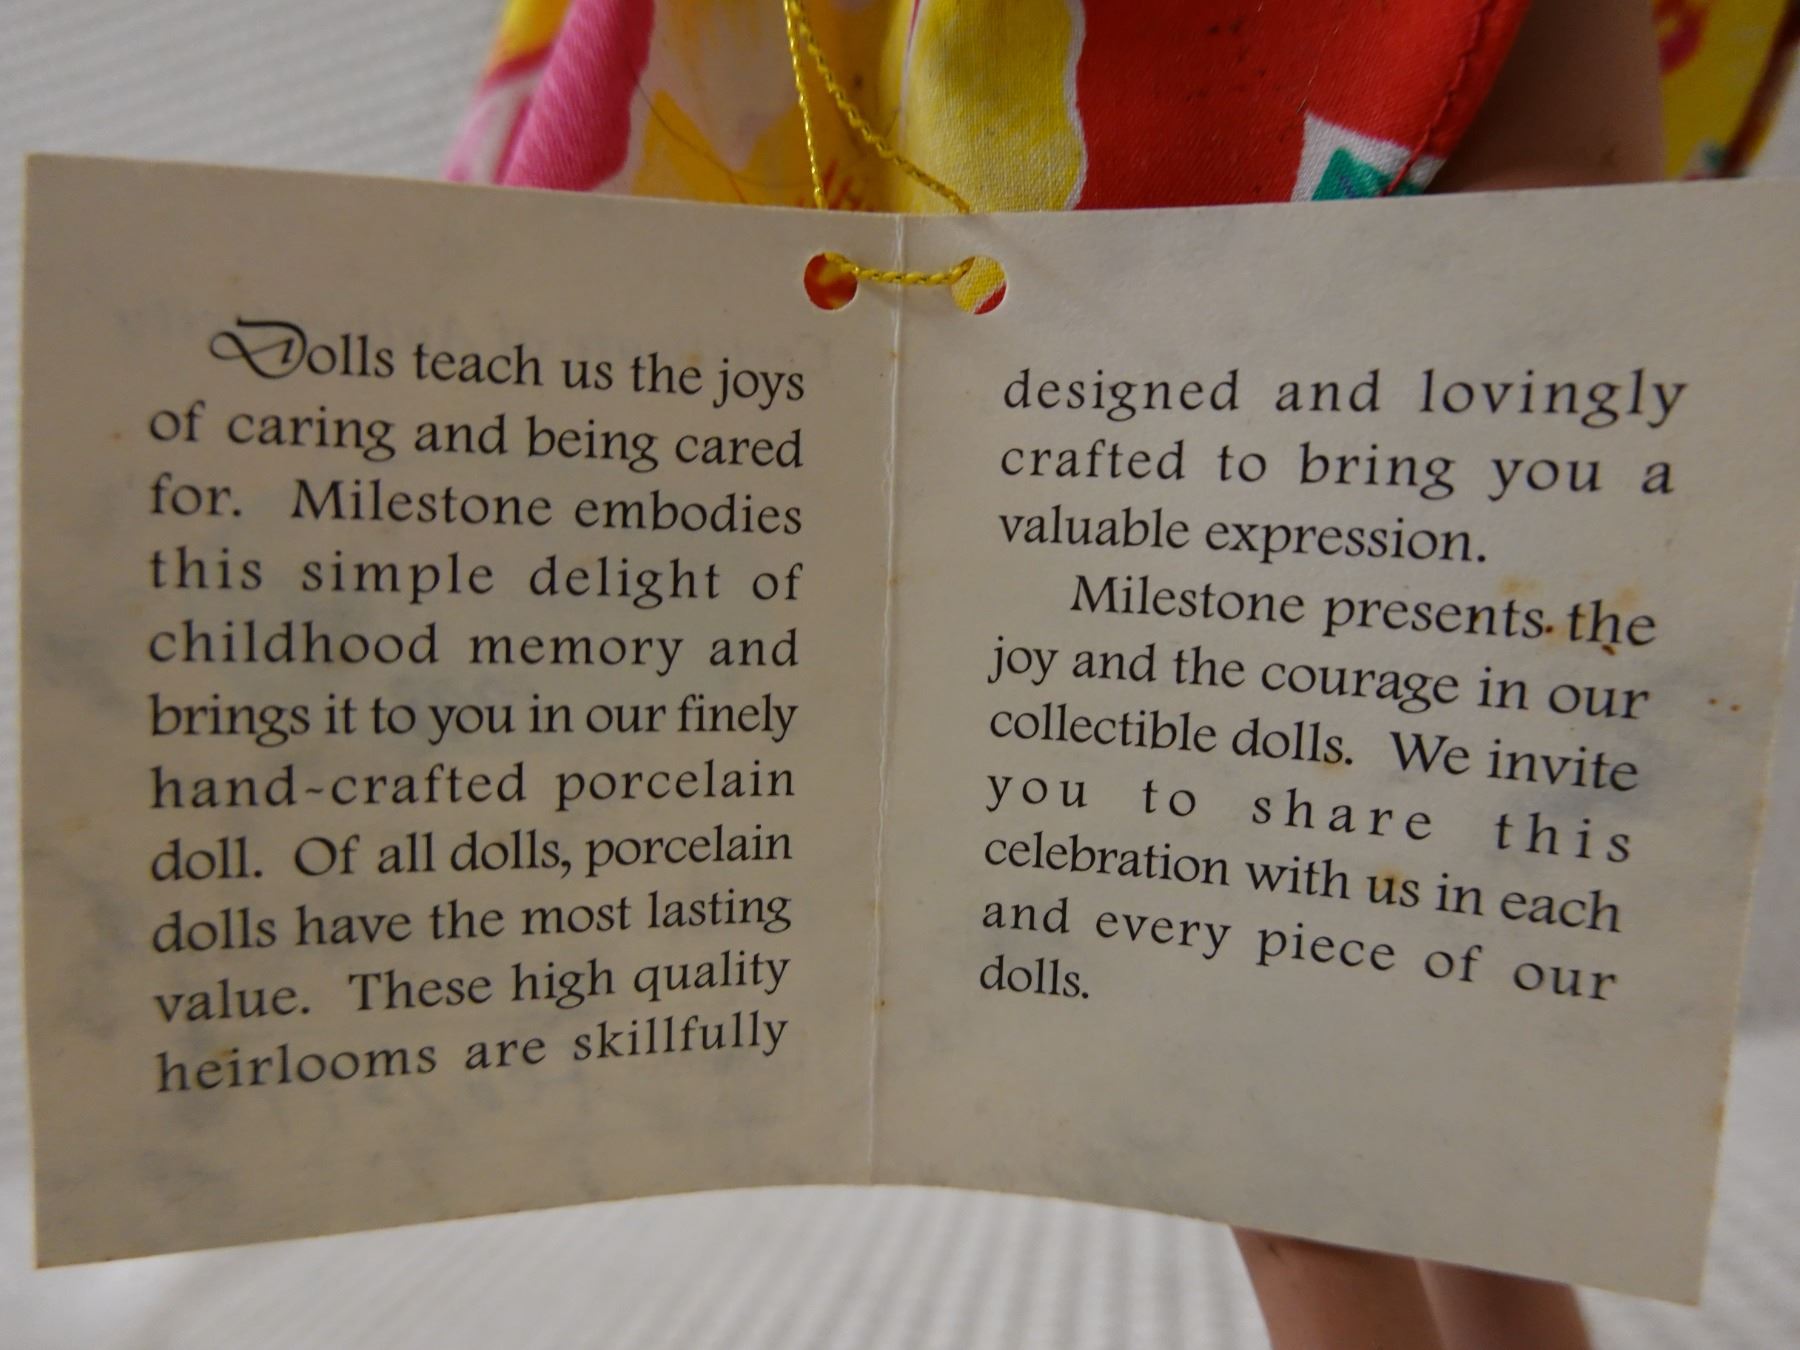 Dolls teach us the joys
of caring and being cared
for. Milestone embodies
this simple delight of
childhood memory and
brings it to you in our finely
hand-crafted porcelain
doll. Of all dolls, porcelain
dolls have the most lasting
value. These high quality
heirlooms are skillfully
designed and lovingly
crafted to bring you a
valuable expression.
Milestone presents the
joy and the courage in our
collectible dolls. We invite
you to share this
celebration with us in each
and every piece of our
dolls.